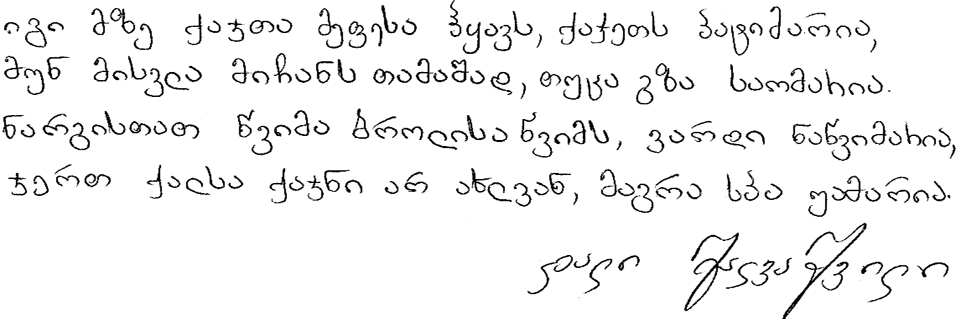 იგი მზე ქაჯთა მეფესა ჰყავს, ქაჯეთს პატიმარია,
მუნ მისვლა მიჩანს თამაშად, თუცა გზა საომარია.
ნარგისთათ წვიმა ბროლისა წვიმს, ვარდი ნაწვიმარია,
ჯერთ ქალსა ქაჯნი არ ახლვან, მაგრა სპა უამარია.
შალვაშვილი